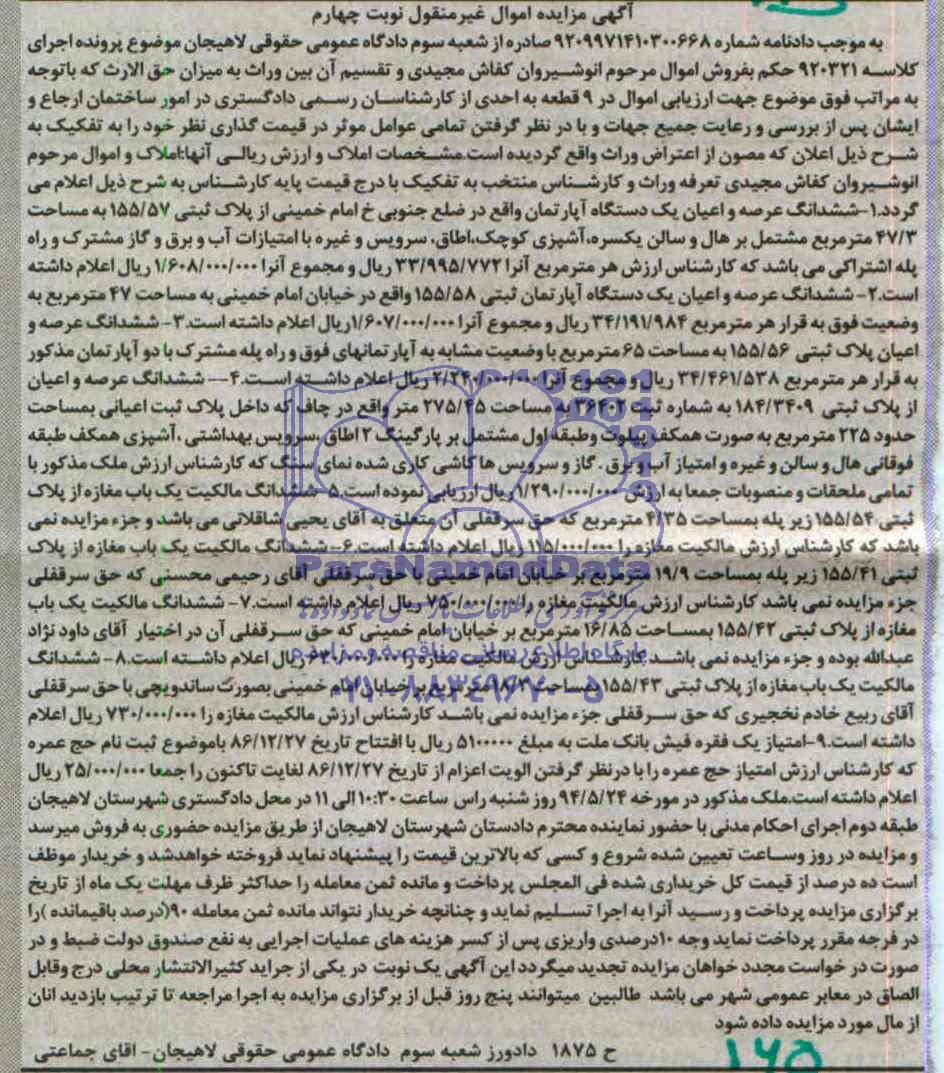 آگهی مزایده اموال غیرمنقول نوبت چهارم
به موجب دادنامه شماره ۹۲۰۹۹۷۱۴۱۰۳۰۰۶۶۸ صادره از شعبه سوم دادگاه عمومی حقوقی لاهیجان موضوع پرونده اجرای
کلاسه ۹۲۰۳۲۱ حکم بفروش اموال مرحوم انوشیروان کفاش مجیدی و تقسیم آن بین وراث به میزان حق الارث که باتوجه
به مراتب فوق موضوع جهت ارزیابی اموال در ۹ قطعه به احدی از کارشناسان رسمی دادگستری در امور ساختمان ارجاع و
ایشان پس از بررسی و رعایت جمیع جهات و با در نظر گرفتن تمامی عوامل موثر در قیمت گذاری نظر خود را به تفکیک به
شرح ذیل اعلان که مصون از اعتراض وراث واقع گردیده است.مشخصات املاک و ارزش ریالی آنها:املاک و اموال مرحوم
انوشیروان کفاش مجیدی تعرفه وراث و کارشناس منتخب به تفکیک با درج قیمت پایه کارشناس به شرح ذیل اعلام می
گردد.۱-ششدانگ عرصه و اعیان یک دستگاه آپارتمان واقع در ضلع جنوبی خ امام خمینی از پلاک ثبتی ۱۵۵/۵۷ به مساحت
۴۷/۳ مترمربع مشتمل بر هال و سالن یکسره،آشپزی کوچک،اطاق، سرویس و غیره با امتیازات آب و برق و گاز مشترک و راه
پله اشتراکی می باشد که کارشناس ارزش هر مترمربع آنرا ۳۳/۹۹۵/۷۷۲ ریال و مجموع آنرا ۱/۶۰۸/۰۰۰/۰۰۰ ریال اعلام داشته
است.۲- ششدانگ عرصه و اعیان یک دستگاه آپارتمان ثبتی ۱۵۵/۵۸ واقع در خیابان امام خمینی به مساحت ۴۷ مترمربع به
وضعیت فوق به قرار هر مترمربع ۳۴/۱۹۱/۹۸۴ ریال و مجموع آنرا ۱/۶۰۷/۰۰۰/۰۰۰ریال اعلام داشته است.۳- ششدانگ عرصه و
اعیان پلاک ثبتی ۱۵۵/۵۶ به مساحت ۶۵ مترمربع با وضعیت مشابه به آپارتمانهای فوق و راه پله مشترک با دو آپارتمان مذکور
به قرار هر مترمربع ۳۴/۴۶۱/۵۳۸ ریال و مجموع آنرا ۲/۲۴۰/۰۰۰/۰۰۰ ریال اعلام داشته است.۴-- ششدانگ عرصه و اعیان
از پلاک ثبتی ۱۸۴/۳۴۰۹ به شماره ثبت ۳۶۴۰۲ به مساحت ۲۷۵/۴۵ متر واقع در چاف که داخل پلاک ثبت اعیانی بمساحت
حدود ۲۲۵ مترمربع به صورت همکف پیلوت وطبقه اول مشتمل بر پارکینگ ۲ اطاق ،سرویس بهداشتی ،آشپزی همکف طبقه
فوقانی هال و سالن و غیره و امتیاز آب و برق . گاز و سرویس ها کاشی کاری شده نمای سنگ که کارشناس ارزش ملک مذکور با
تمامی ملحقات و منصوبات جمعا به ارزش ۱/۲۹۰/۰۰۰/۰۰۰ریال ارزیابی نموده است.۵-ششدانگ مالکیت یک باب مغازه از پلاک
ثبتی ۱۵۵/۵۴ زیر پله بمساحت ۴/۳۵ مترمربع که حق سرقفلی آن متعلق به آقای یحیی شاقلانی می باشد و جزء مزایده نمی
باشد که کارشناس ارزش مالکیت مغازه را ۱۱۵/۰۰۰/۰۰۰ ریال اعلام داشته است.۶- ششدانگ مالکیت یک باب مغازه از پلاک
ثبتی ۱۵۵/۴۱ زیر پله بمساحت ۱۹/۹ مترمربع بر خیابان امام خمینی با حق سرقفلی آقای رحیمی محسنی که حق سرقفلی
جزء مزایده نمی باشد کارشناس ارزش مالکیت مغازه را ۷۵۰/۰۰۰/۰۰۰ ریال اعلام داشته است.۷- ششدانگ مالکیت یک باب
مغازه از پلاک ثبتی ۱۵۵/۴۲ بمساحت ۱۶/۸۵ مترمربع بر خیابان امام خمینی که حق سرقفلی آن در اختیار آقای داود نژاد
عبدالله بوده و جزء مزایده نمی باشد کارشناس ارزش مالکیت مغازه را ریال اعلام داشته است.۸- ششدانگ
مالکیت یک باب مغازه از پلاک ثبتی ۱۵۵/۴۳ بمساحت مترمربع بر خیابان امام خمینی بصورت ساندویچی با حق سرقفلی
آقای ربیع خادم نخجیری که حق سرقفلی جزء مزایده نمی باشد کارشناس ارزش مالکیت مغازه را ۷۳۰/۰۰۰/۰۰۰ ریال اعلام
داشته است.۹-امتیاز یک فقره فیش بانک ملت به مبلغ ۵۱۰۰۰۰۰ ریال با افتتاح تاریخ ۸۶/۱۲/۲۷ باموضوع ثبت نام حج عمره
که کارشناس ارزش امتیاز حج عمره را با درنظر گرفتن الویت اعزام از تاریخ ۸۶/۱۲/۲۷ لغایت تاکنون را جمعا ۲۵/۰۰۰/۰۰۰ ریال
اعلام داشته است.ملک مذکور در مورخه ۹۴/۵/۲۴ روز شنبه راس ساعت ۱۰:۳۰ الی ۱۱ در محل دادگستری شهرستان لاهیجان
طبقه دوم اجرای احکام مدنی با حضور نماینده محترم دادستان شهرستان لاهیجان از طریق مزایده حضوری به فروش میرسد
و مزایده در روز وساعت تعیین شده شروع و کسی که بالاترین قیمت را پیشنهاد نماید فروخته خواهدشد و خریدار موظف
است ده درصد از قیمت کل خریداری شده فی المجلس پرداخت و مانده ثمن معامله را حداکثر ظرف مهلت یک ماه از تاریخ
برگزاری مزایده پرداخت و رسید آنرا به اجرا تسلیم نماید و چنانچه خریدار نتواند مانده ثمن معامله ۹۰(درصد باقیمانده )را
در فرجه مقرر پرداخت نماید وجه ۱۰درصدی واریزی پس از کسر هزینه های عملیات اجرایی به نفع صندوق دولت ضبط و در
صورت در خواست مجدد خواهان مزایده تجدید میگردد این آگهی یک نوبت در یکی از جراید کثیرالانتشار محلی درج وقابل
الصاق در معابر عمومی شهر می باشد طالبین میتوانند پنج روز قبل از برگزاری مزایده به اجرا مراجعه تا ترتیب بازدید انان
از مال مورد مزایده داده شود
ح ۱۸۷۵ دادورز شعبه سوم دادگاه عمومی حقوقی لاهیجان- اقای جماعتی
۱۴۵
ParsNamadData
پایگاه اطلاع رسانی مناقصه و مزایده
۰۲۱-۸۸۳۴۹۶۷۰-۵